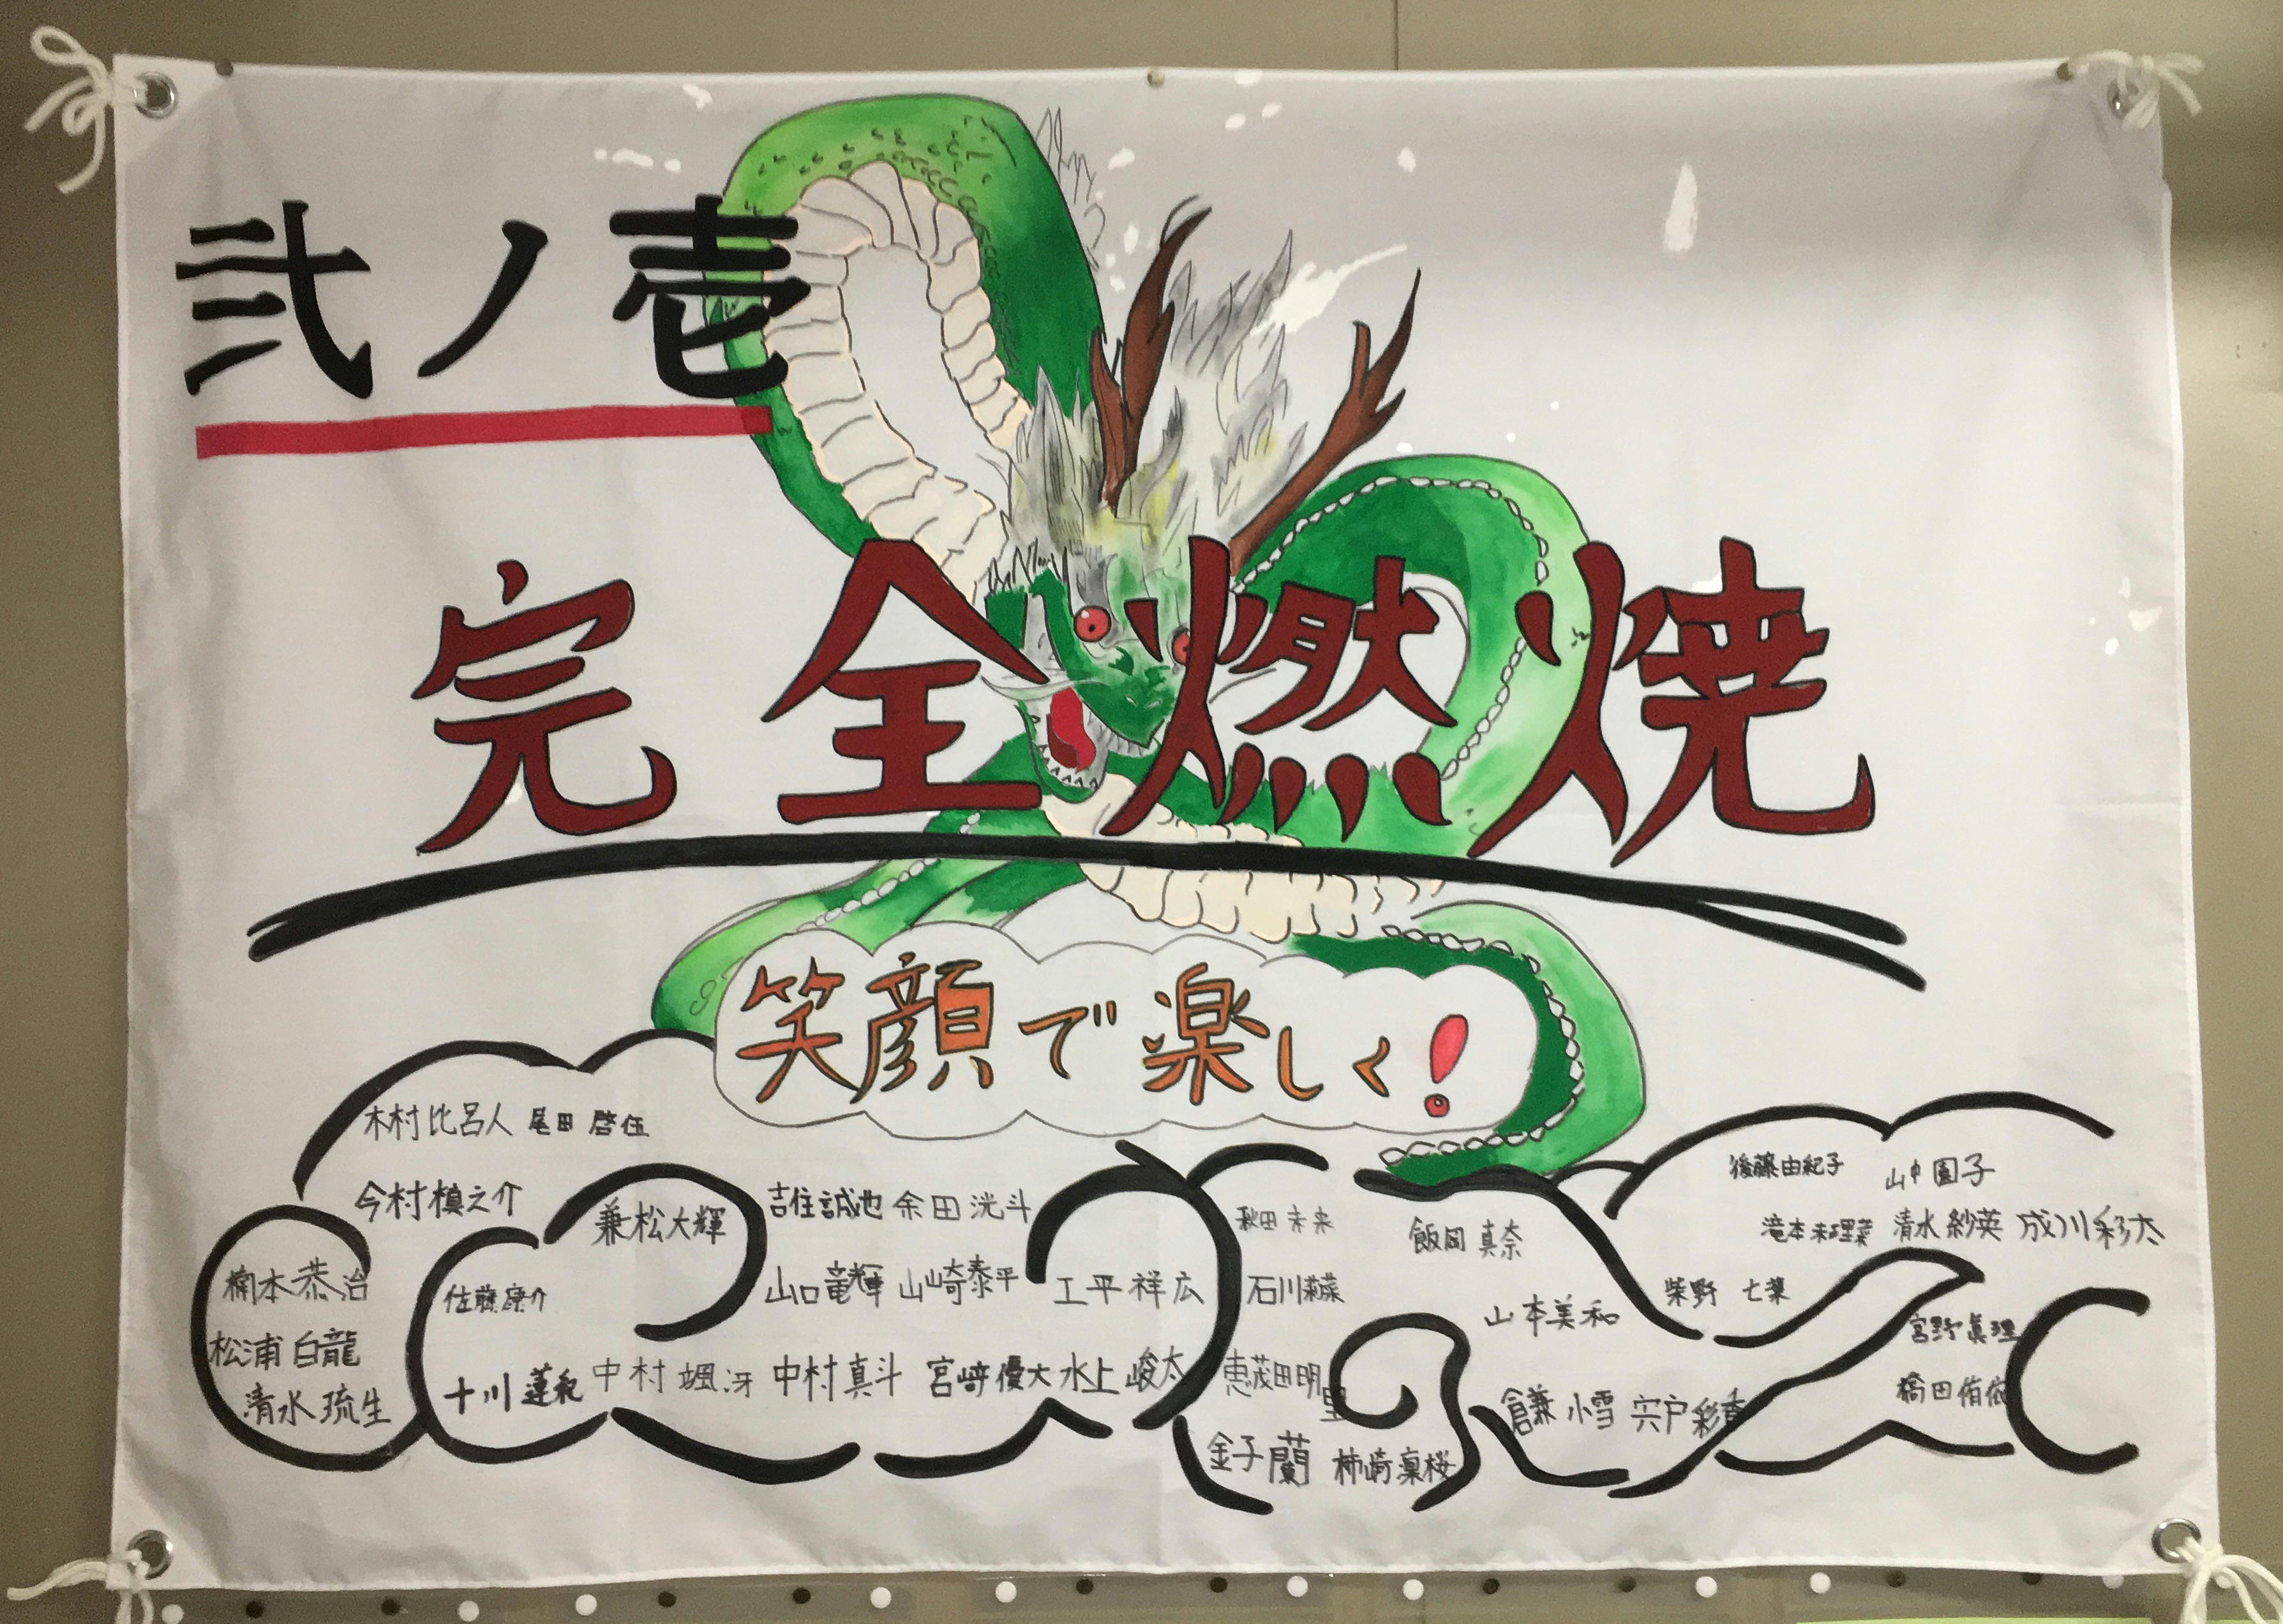 弐ノ壱
完全燃焼
笑顔で楽しく!
木村比呂人 尾田啓伍
今村槙之介
兼松大輝
吉住誠也 余田洸斗
楠本恭治
佐藤康介
山口竜輝 山崎泰平
工平祥広
松浦白龍
清水琉生
十川蓮和
中村颯冴 中村真斗 宮﨑優大 水上峻太
秋田未来
石川菜
恵茂田明里
金子蘭 柿崎凛桜
飯岡真奈
山本美和
倉兼小雪 宍戸彩香
後藤由紀子 山中園子
滝本未理菜 清水紗英 成川彩太
柴野七菜
宮野眞理
橋田侑依